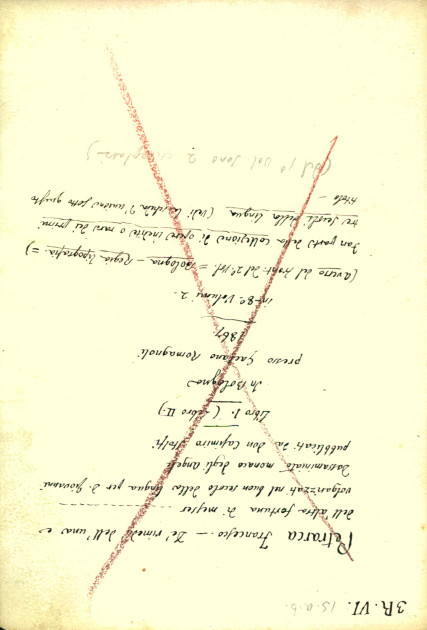 3R.VI. 15.a.b.
Petrarca Francesco — De' rimedi dell'una e
dell'altra fortuna di messer
volgarizzati nel buon secolo della lingua per d. Giovanni
Dassaminiato monaco degli Angeli
pubblicati da don Casimiro Stolfi.
Libro I. (- Libro II.)
In Bologna
presso Gaetano Romagnoli
1867.
in-8° Volumi 2.
(a verso del front. del 2° Vol. = Bologna — Regia Tipografia. =)
Fan parte della Collezione di opere inedite o rare dei primi
tre secoli della lingua (Vedi la scheda d'unione sotto questo
titolo —
(del 1° Vol. sono 2 esemplari)